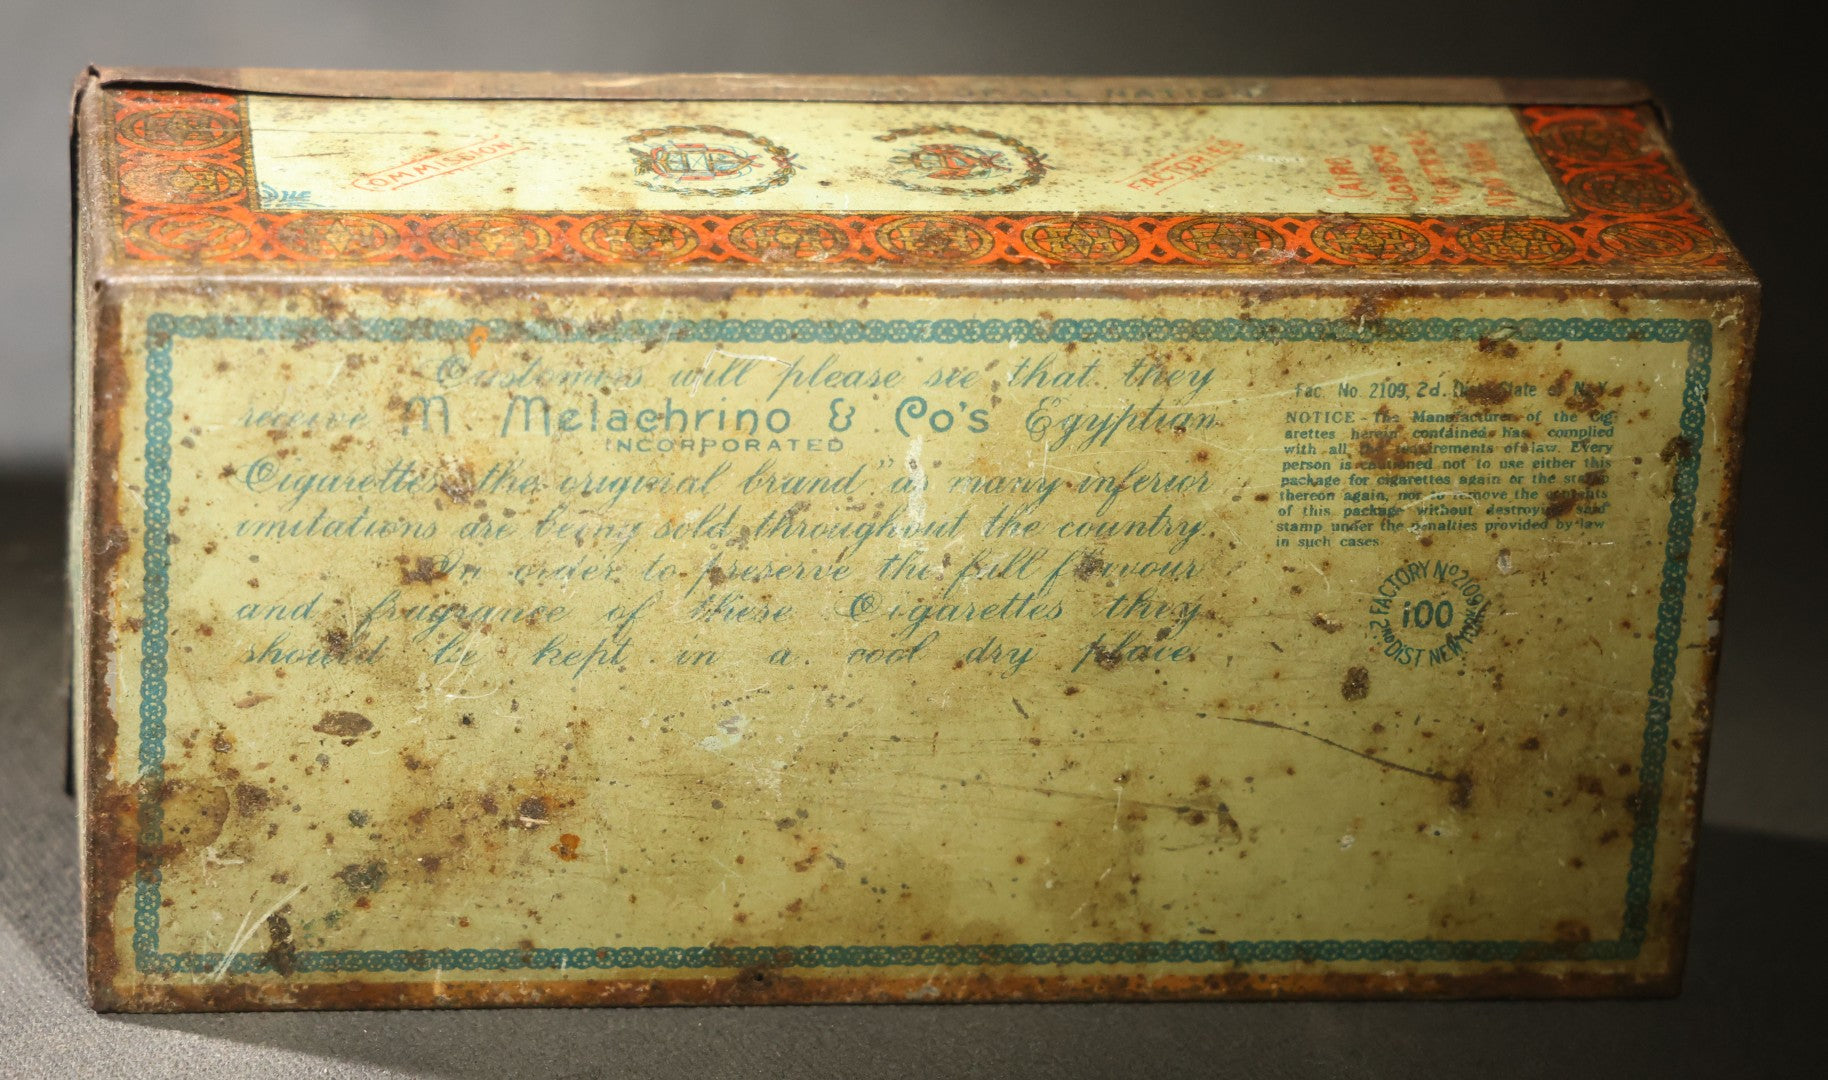 SMALL NATION
COMMISSION
FACTORIES
CAIRO
LONDON
Customers will please see that they
receive M Melachrino & Co's Egyptian
INCORPORATED
Cigarettes "the original brand" as many inferior
imitations are being sold throughout the country.
In order to preserve the full flavour
and fragrance of these Cigarettes they
should be kept in a cool dry place.
Fac. No. 2109, 2d. Dist. State of N. Y.
NOTICE - The Manufacturer of the Cig-
arettes herein contained has complied
with all the requirements of law. Every
person is cautioned not to use either this
package for cigarettes again or the stamp
thereon again, nor to remove the contents
of this package without destroying said
stamp under the penalties provided by law
in such cases.
FACTORY No 2109
100
2ND DIST NEW YORK